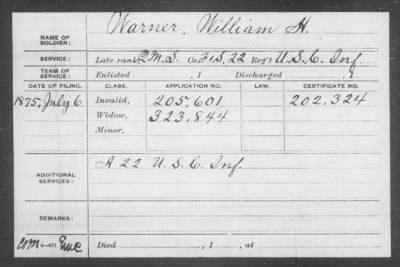 NAME OF SOLDIER: Warner, William H.
SERVICE: Late rank Q.M.S. Co. F&S, 22 Reg't U.S.C. Inf.
TERM OF SERVICE: Enlisted , 1 Discharged , 1
DATE OF FILING. CLASS. APPLICATION NO. LAW. CERTIFICATE NO.
1875, July 6 Invalid, 205,601 202,324
Widow, 323,844
Minor,
ADDITIONAL SERVICES: A 22 U.S.C. Inf.
REMARKS:
Died , 1 , at